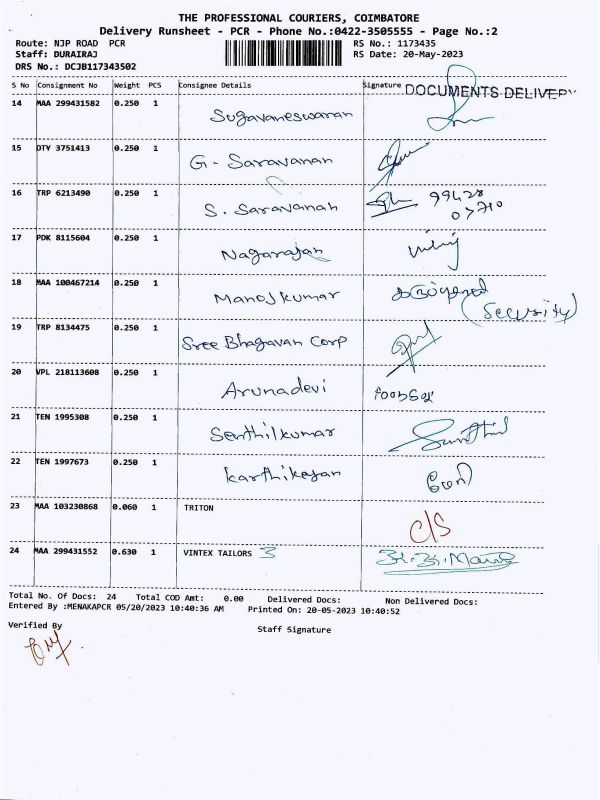 THE PROFESSIONAL COURIERS, COIMBATORE
Delivery Runsheet - PCR - Phone No.:0422-3505555 - Page No.:2
Route: NJP ROAD PCR RS No.: 1173435
Staff: DURAIRAJ RS Date: 20-May-2023
DRS No.: DCJB117343502
S No Consignment No Weight PCS Consignee Details Signature DOCUMENTS DELIVER
14 MAA 299431582 0.250 1 Sugavaneswaran
15 DTY 3751413 0.250 1 G. Saravanan
16 TRP 6213490 0.250 1 S. Saravanan 99428
07710
17 PDK 8115604 0.250 1 Nagarajan
18 MAA 100467214 0.250 1 Manojkumar
(Security)
19 TRP 8134475 0.250 1 Sree Bhagavan Corp
20 VPL 218113608 0.250 1 Arunadevi
21 TEN 1995308 0.250 1 Senthilkumar
22 TEN 1997673 0.250 1 Karthikeyan
23 MAA 103230868 0.060 1 TRITON C/S
24 MAA 299431552 0.630 1 VINTEX TAILORS 3
Total No. Of Docs: 24 Total COD Amt: 0.00 Delivered Docs: Non Delivered Docs:
Entered By :MENAKAPCR 05/20/2023 10:40:36 AM Printed On: 20-05-2023 10:40:52
Verified By Staff Signature